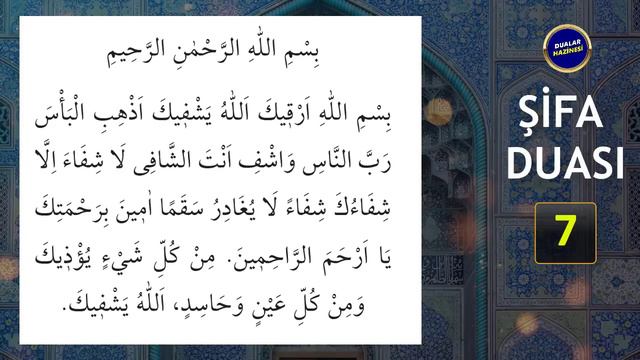 بِسْمِ اللّٰهِ الرَّحْمٰنِ الرَّحِيمِ
بِسْمِ اللّٰهِ اَرْق۪يكَ اَللّٰهُ يَشْف۪يكَ اَذْهِبِ الْبَأْسَ
رَبَّ النَّاسِ وَاشْفِ اَنْتَ الشَّافِى لَا شِفَاءَ اِلَّا
شِفَاءُكَ شِفَاءً لَا يُغَادِرُ سَقَمًا اٰمِينَ بِرَحْمَتِكَ
يَا اَرْحَمَ الرَّاحِم۪ينَ. مِنْ كُلِّ شَيْءٍ يُؤْذ۪يكَ
وَمِنْ كُلِّ عَيْنٍ وَحَاسِدٍ، اَللّٰهُ يَشْف۪يكَ.
DUALAR
HAZİNESİ
ŞİFA
DUASI
7